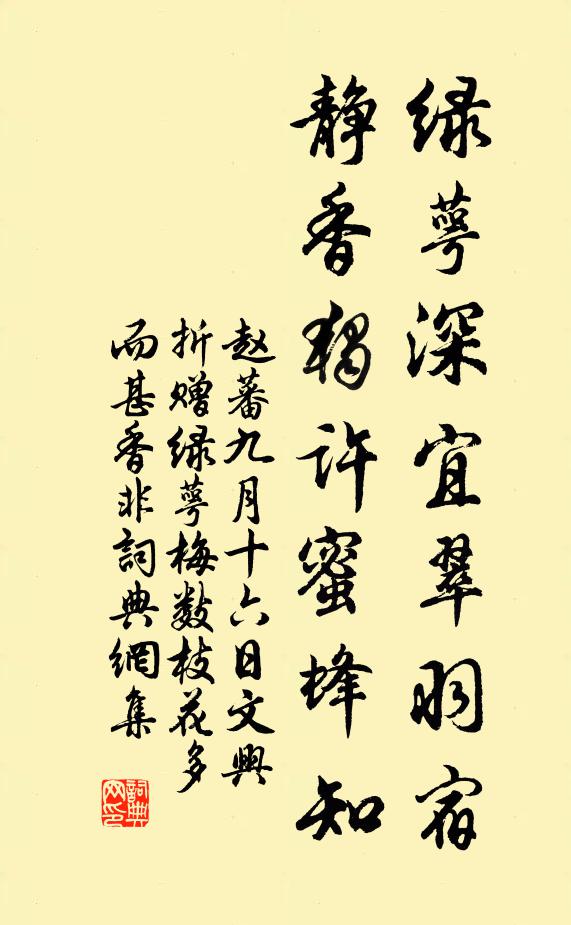 绿萼深宜翠羽宿
静香独许蜜蜂知
赵蕃九月十六日文興
折赠绿萼梅数枝花多
而甚香非詞典網集
詞典
网印